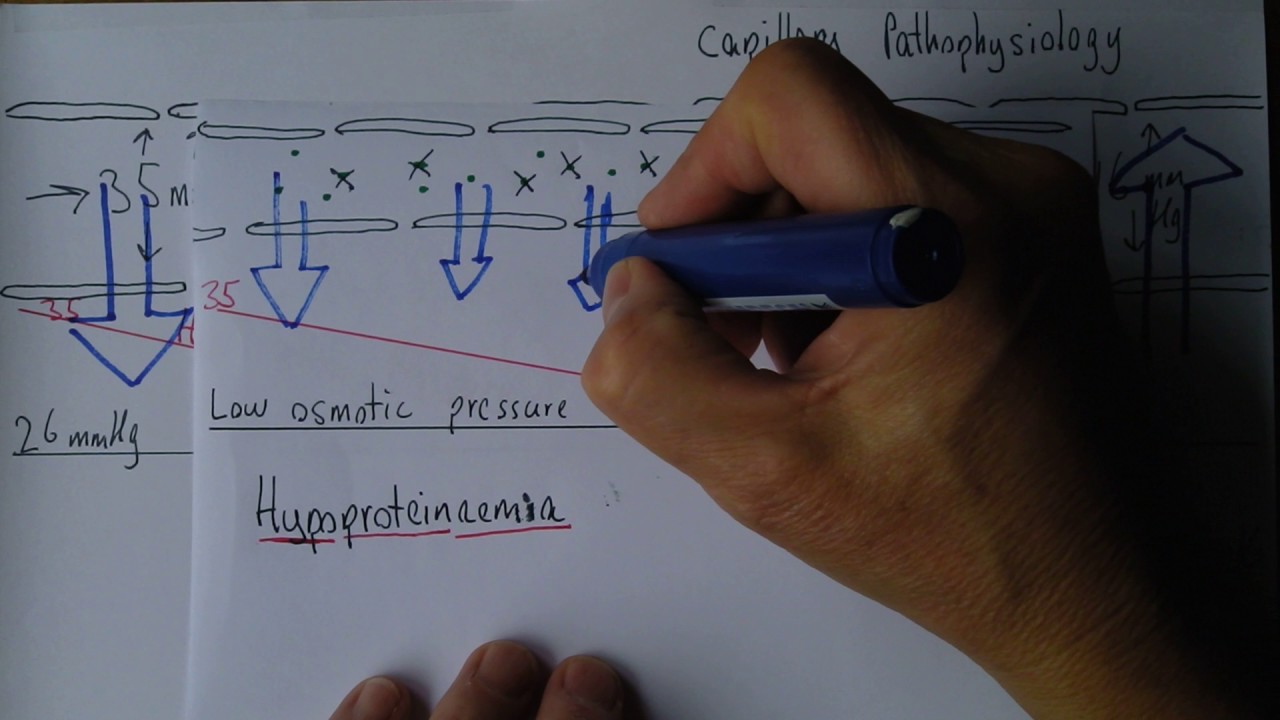 Capillary Pathophysiology
35 m
mm
Hg
35
35
H
26 mmHg
Low osmotic pressure
Hypoproteinaemia